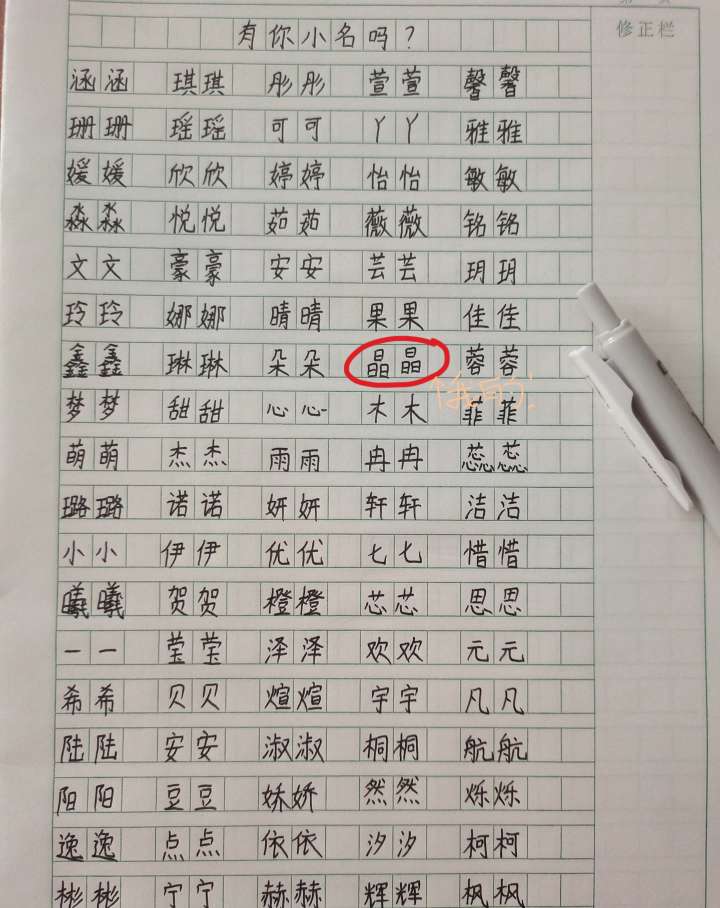 修正栏
有你小名吗？
涵涵 琪琪 彤彤 萱萱 馨馨
珊珊 瑶瑶 可可 丫丫 雅雅
媛媛 欣欣 婷婷 怡怡 敏敏
淼淼 悦悦 茹茹 薇薇 铭铭
文文 豪豪 安安 芸芸 玥玥
玲玲 娜娜 晴晴 果果 佳佳
鑫鑫 琳琳 朵朵 晶晶 蓉蓉
俄的！
梦梦 甜甜 心心 木木 菲菲
萌萌 杰杰 雨雨 冉冉 蕊蕊
璐璐 诺诺 妍妍 轩轩 洁洁
小小 伊伊 优优 七七 惜惜
曦曦 贺贺 橙橙 芯芯 思思
一一 莹莹 泽泽 欢欢 元元
希希 贝贝 煊煊 宇宇 凡凡
陆陆 安安 淑淑 桐桐 航航
阳阳 豆豆 娇娇 然然 烁烁
逸逸 点点 依依 汐汐 柯柯
彬彬 宁宁 赫赫 辉辉 枫枫